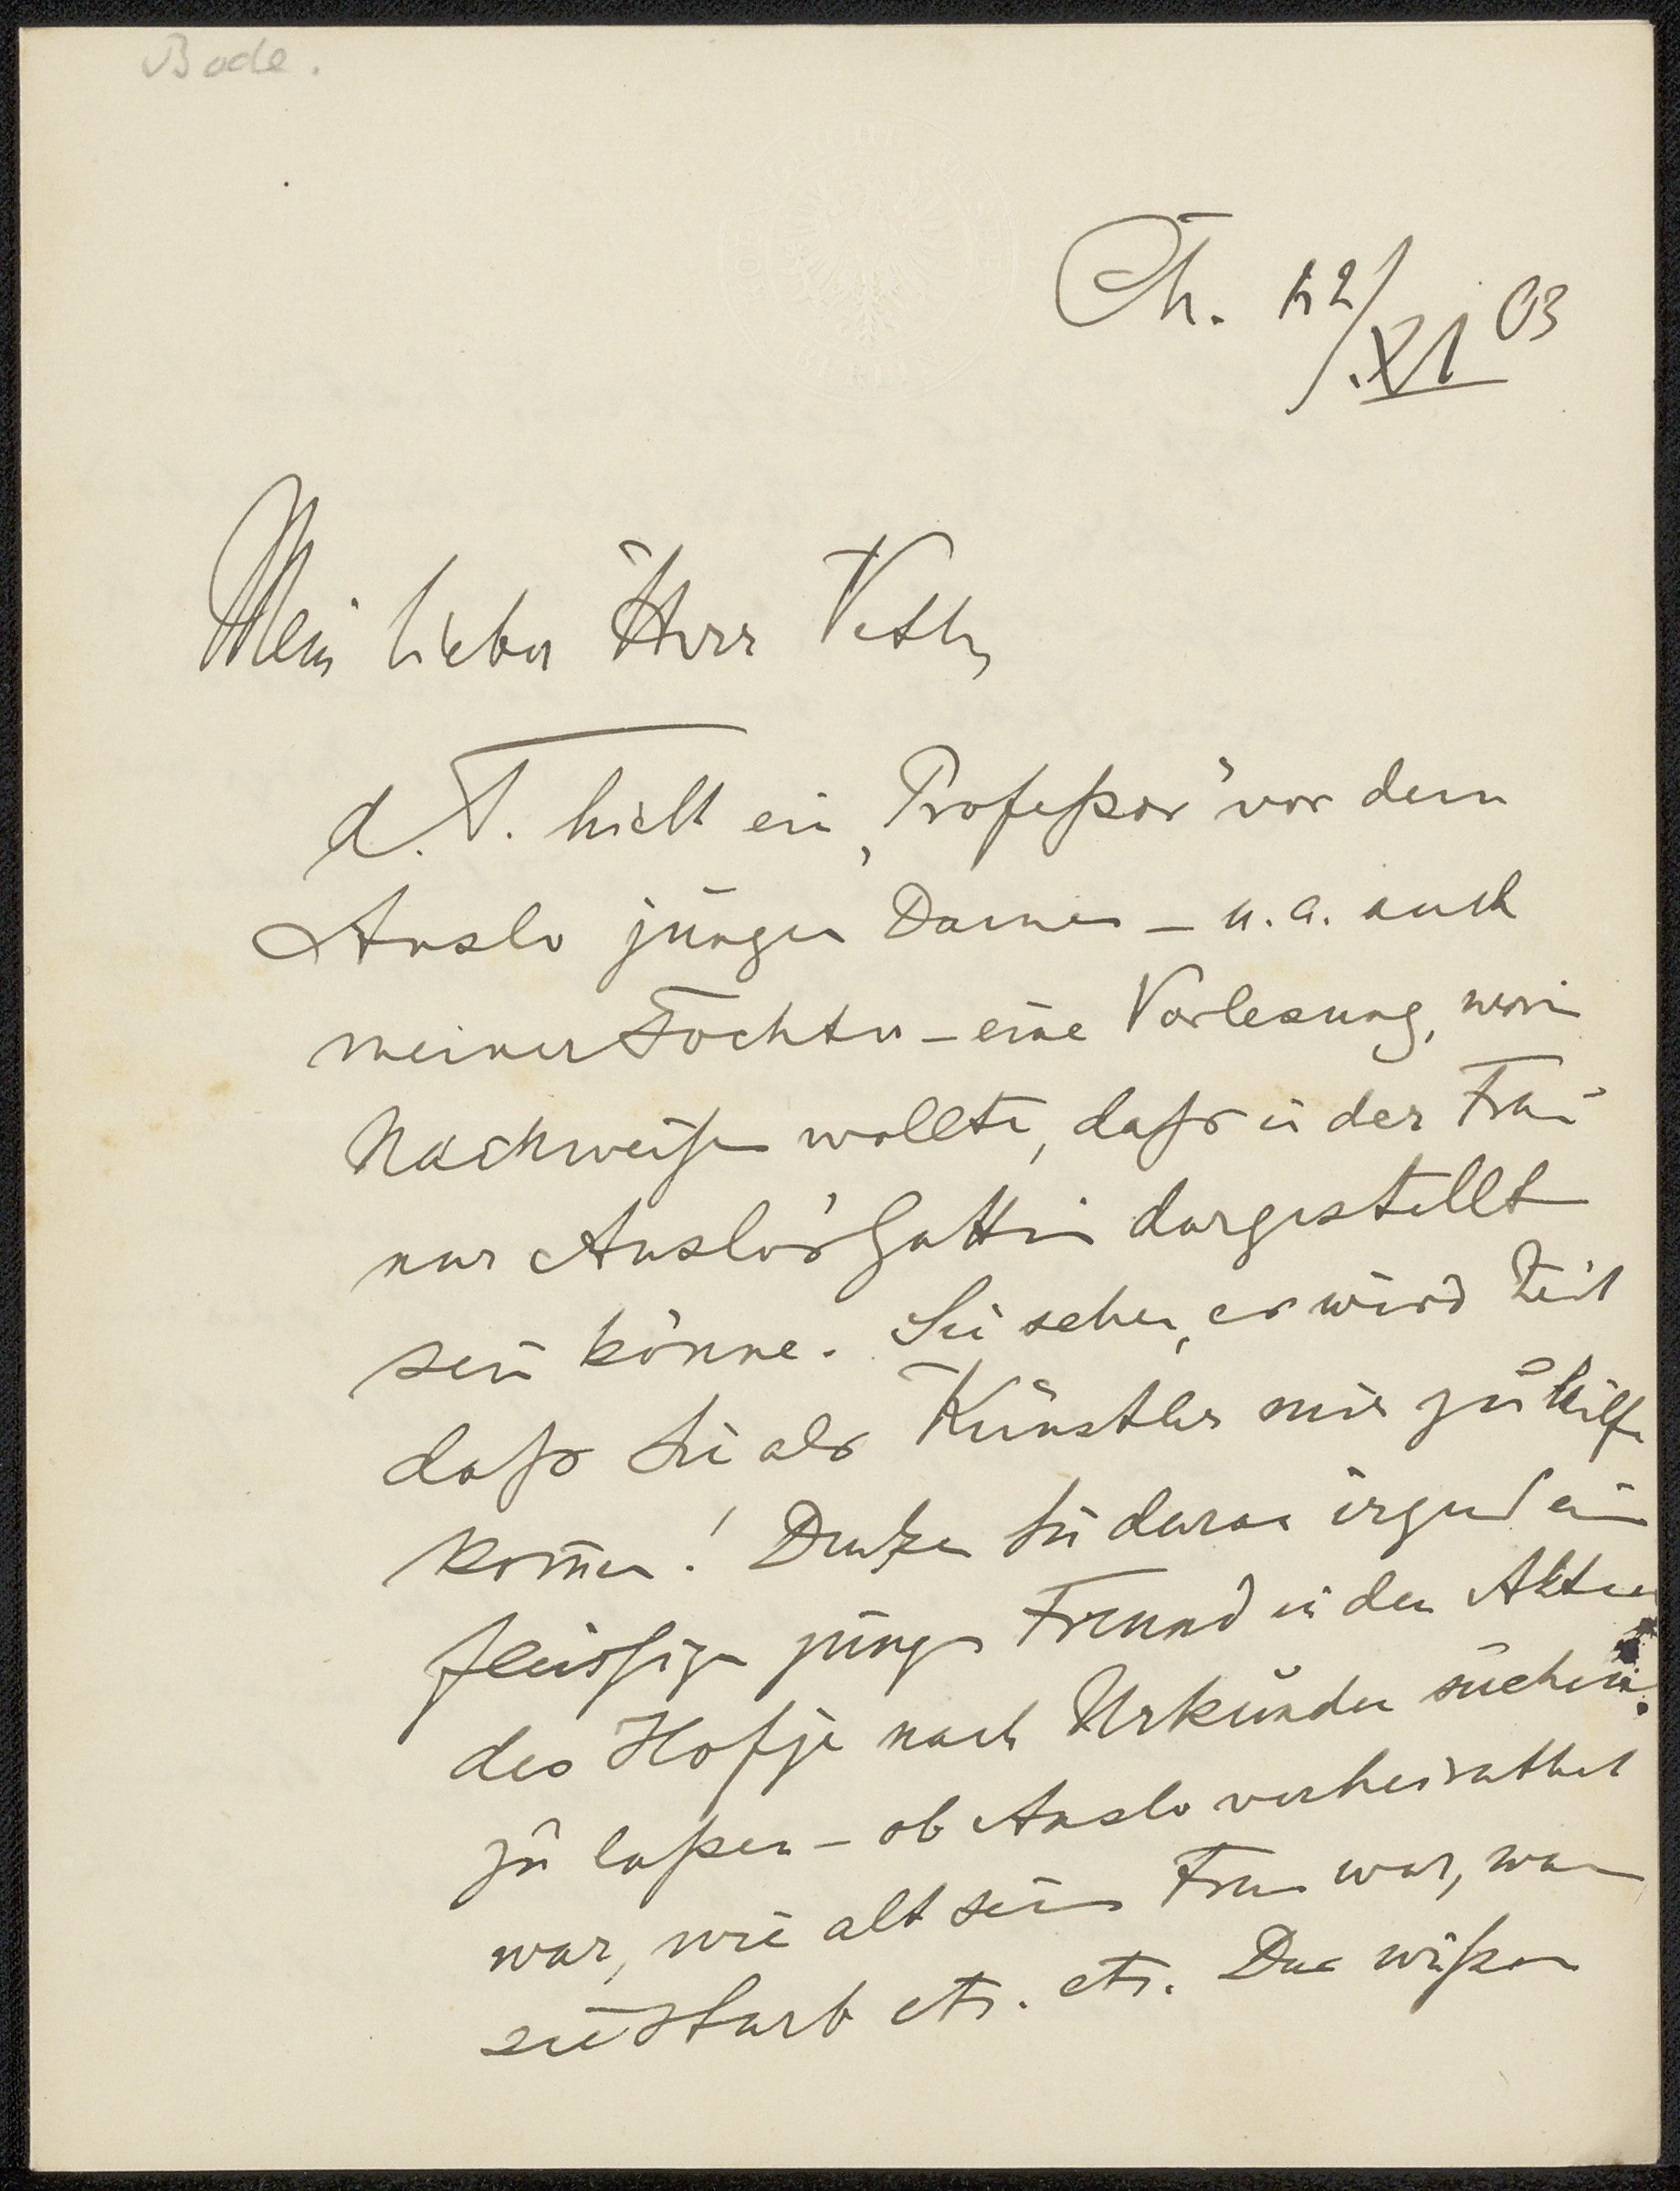 Bode.
Ch. 12/XI 03
Mein lieber Herr Veth,
d. T. hielt ein „Professor" vor dem
Anslo junger Damen – u. a. auch
meiner Tochter – eine Vorlesung, worin
nachweisen wollte, daß in der Frau
nur Anslo's Gattin dargestellt
sein könne. Sie sehen, es wird Zeit
daß Sie als Künstler mir zu Hilfe
kom̄en! Denken Sie daran irgend ein
fleissigen jungen Freund in den Akten
des Hofje nach Urkunden suchen
zu laßen – ob Anslo verheirathet
war, wie alt seine Frau war, wann
sie starb etc. etc. Das wißen